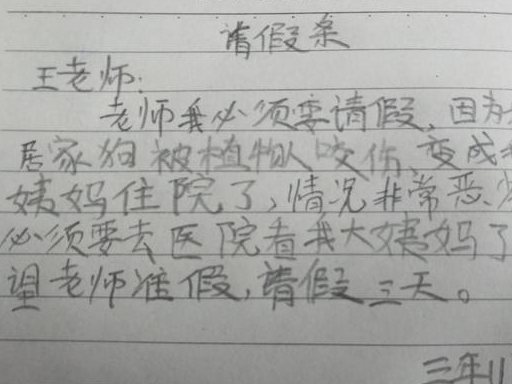 请假条
王老师:
老师我必须要请假,因为
居家狗被植物人咬伤,变成
姨妈住院了,情况非常恶
必须要去医院看我大姨妈了
望老师准假,请假三天。
三年